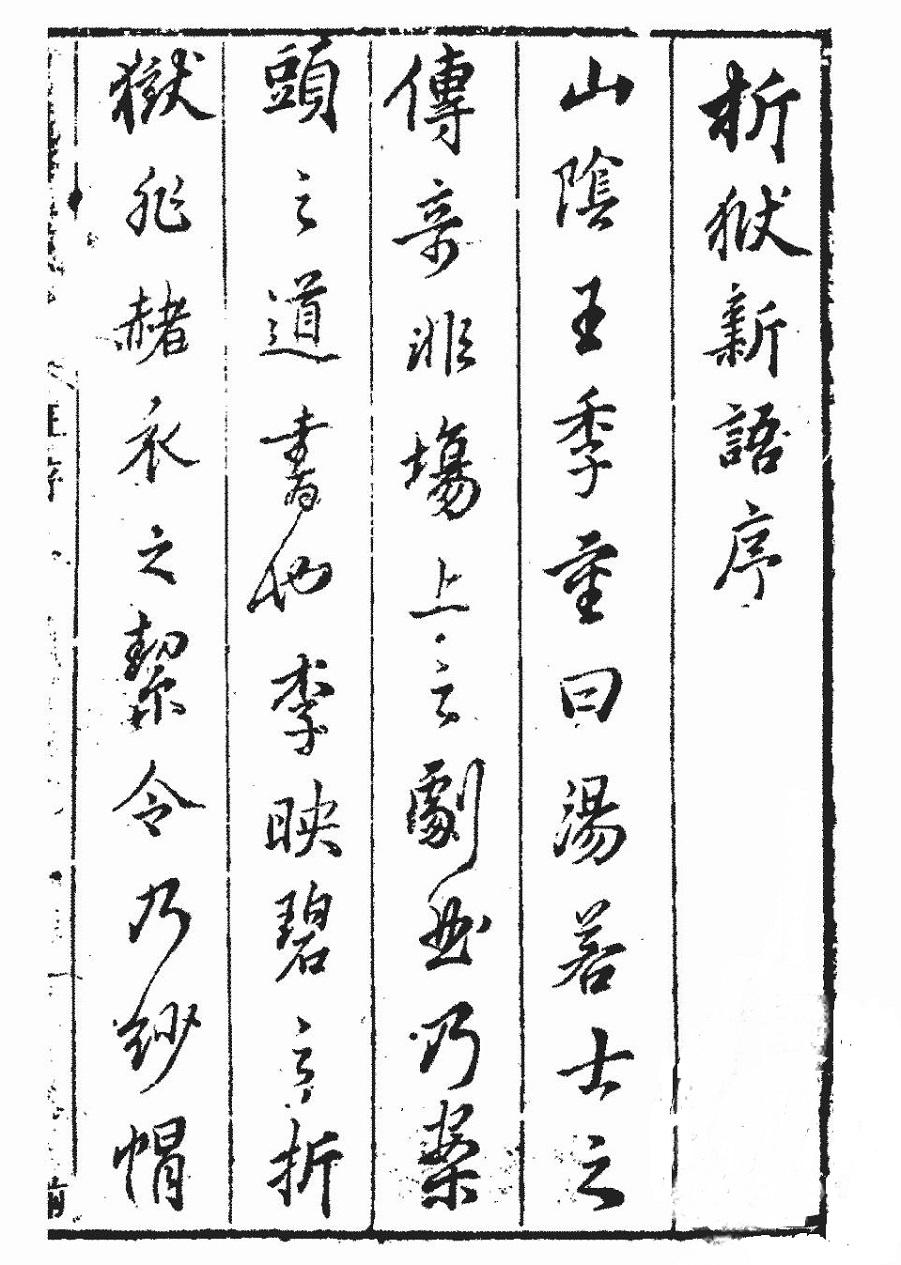 析狱新語序
山陰王季重曰湯若士之
傳奇非塲上之劇曲乃案
頭之道書也李映碧之折
獄非赭衣之絜令乃紗帽